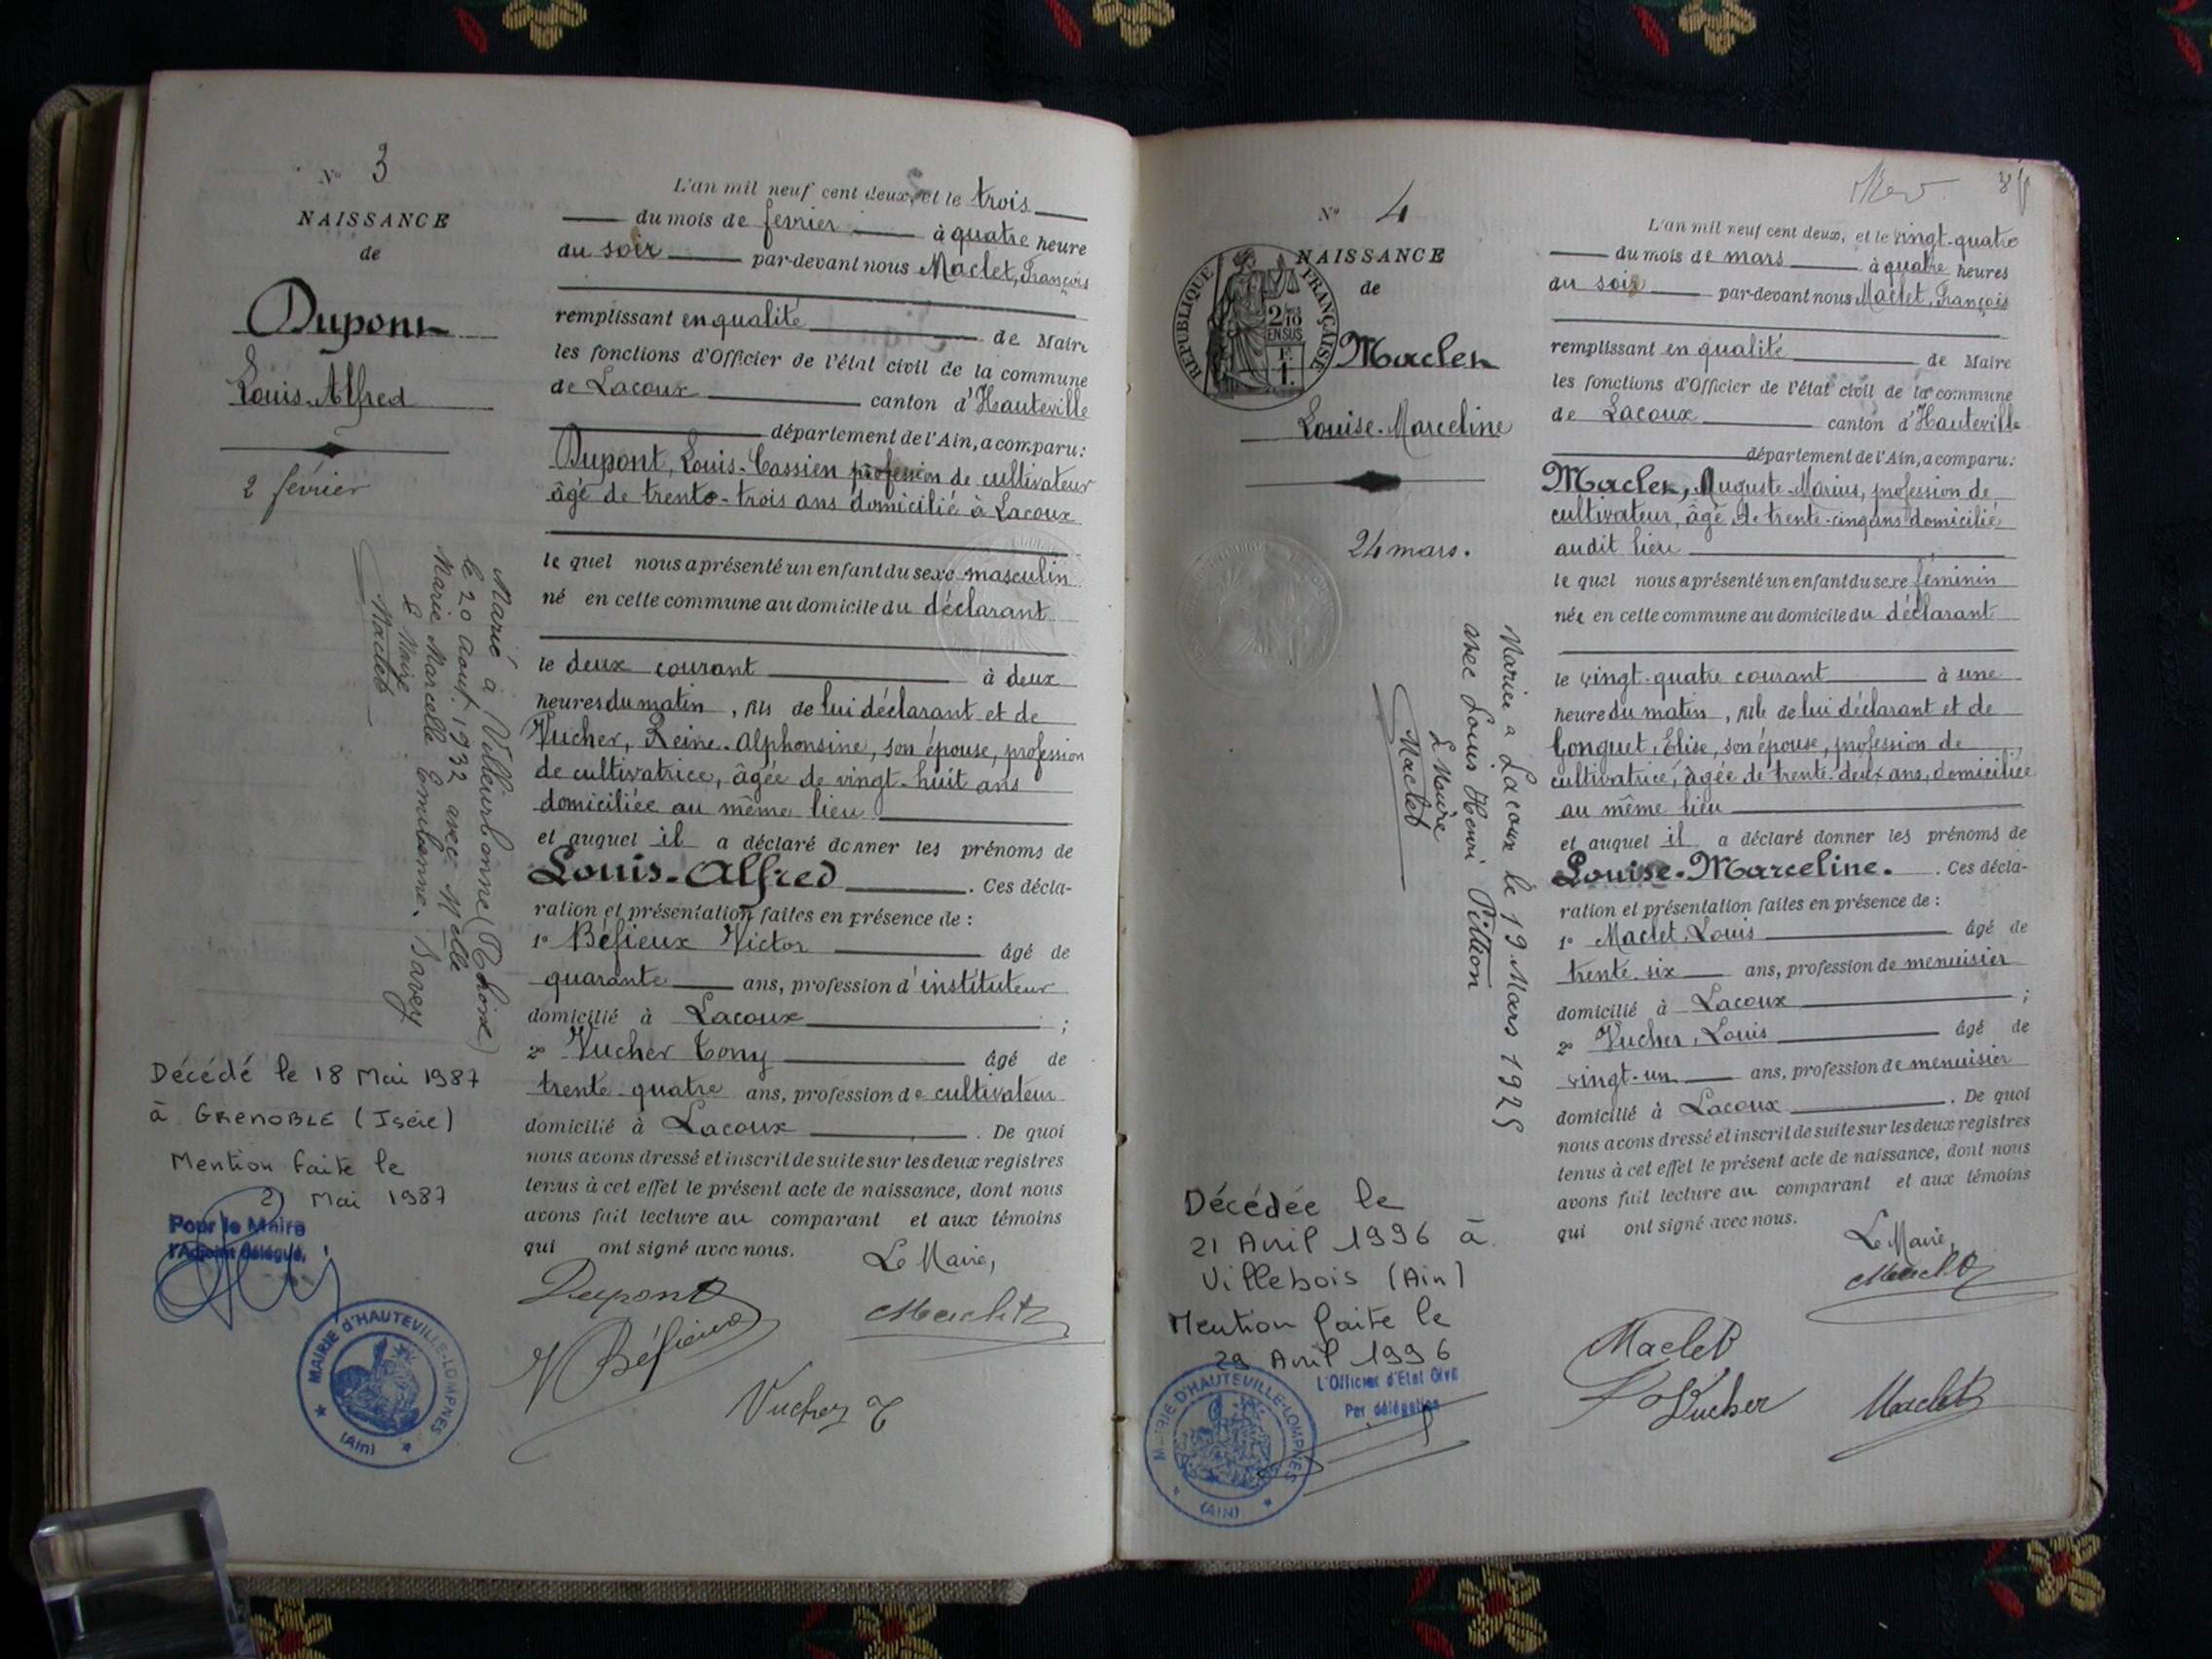 N° 3
NAISSANCE
de
Dupont
Louis-Alfred
2 février
Marié à Villeurbanne (Rhône)
le 20 Aout 1932 avec Melle
Marie Marcelle Emilienne Savey
Le Maire
Maclet
Décédé le 18 Mai 1987
à GRENOBLE (Isère)
Mention faite le
21 Mai 1987
Pour le Maire
l'Adjoint délégué,
MAIRIE d'HAUTEVILLE-LOMPNES
(Ain)
L'an mil neuf cent deux, et le trois
du mois de fevrier à quatre heure
du soir par-devant nous Maclet, François
remplissant en qualité de Maire
les fonctions d'Officier de l'état civil de la commune
de Lacoux canton d'Hauteville
département de l'Ain, a comparu:
Dupont, Louis-Cassien profession de cultivateur
âgé de trente-trois ans domicilié à Lacoux
le quel nous a présenté un enfant du sexe masculin
né en cette commune au domicile du déclarant
le deux courant à deux
heures du matin, fils de lui déclarant et de
Vucher, Reine-Alphonsine, son épouse, profession
de cultivatrice, âgée de vingt-huit ans
domiciliée au même lieu
et auquel il a déclaré donner les prénoms de
Louis-Alfred. Ces décla-
ration et présentation faites en présence de :
1° Béfieux Victor âgé de
quarante ans, profession d'instituteur
domicilié à Lacoux ;
2° Vucher Tony âgé de
trente-quatre ans, profession de cultivateur
domicilié à Lacoux. De quoi
nous avons dressé et inscrit de suite sur les deux registres
tenus à cet effet le présent acte de naissance, dont nous
avons fait lecture au comparant et aux témoins
qui ont signé avec nous.
Le Maire,
Dupont
Maclet
V Béfieux
Vucher T
N° 4
NAISSANCE
de
REPUBLIQUE FRANÇAISE
2/10
EN SUS
F.
1.
Maclet
Louise-Marceline
24 mars.
Mariée à Lacoux le 19 Mars 1925
avec Louis Henri Pittion
Le Maire
Maclet
Décédée le
21 Avril 1996 à
Villebois (Ain)
Mention faite le
29 Avril 1996
L'Officier d'Etat Civil
Par délégation
MAIRIE D'HAUTEVILLE-LOMPNES
(AIN)
L'an mil neuf cent deux, et le vingt-quatre
du mois de mars à quatre heures
du soir par-devant nous Maclet, François
remplissant en qualité de Maire
les fonctions d'Officier de l'état civil de la commune
de Lacoux canton d'Hauteville
département de l'Ain, a comparu:
Maclet, Auguste-Marius, profession de
cultivateur, âgé de trente-cinq ans domicilié
audit lieu
le quel nous a présenté un enfant du sexe féminin
née en cette commune au domicile du déclarant
le vingt-quatre courant à une
heure du matin, fille de lui déclarant et de
Conguet, Elise, son épouse, profession de
cultivatrice, âgée de trente-deux ans, domiciliée
au même lieu
et auquel il a déclaré donner les prénoms de
Louise-Marceline. Ces décla-
ration et présentation faites en présence de :
1° Maclet, Louis âgé de
trente-six ans, profession de menuisier
domicilié à Lacoux ;
2° Vucher, Louis âgé de
vingt-un ans, profession de menuisier
domicilié à Lacoux. De quoi
nous avons dressé et inscrit de suite sur les deux registres
tenus à cet effet le présent acte de naissance, dont nous
avons fait lecture au comparant et aux témoins
qui ont signé avec nous.
Le Maire,
Maclet
Maclet
L Vucher
Maclet